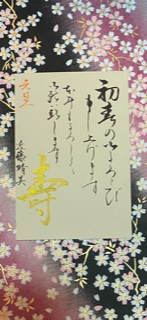 初春のおよろこび
申し上げます
本年もよろしく
お願い致します
元旦
壽